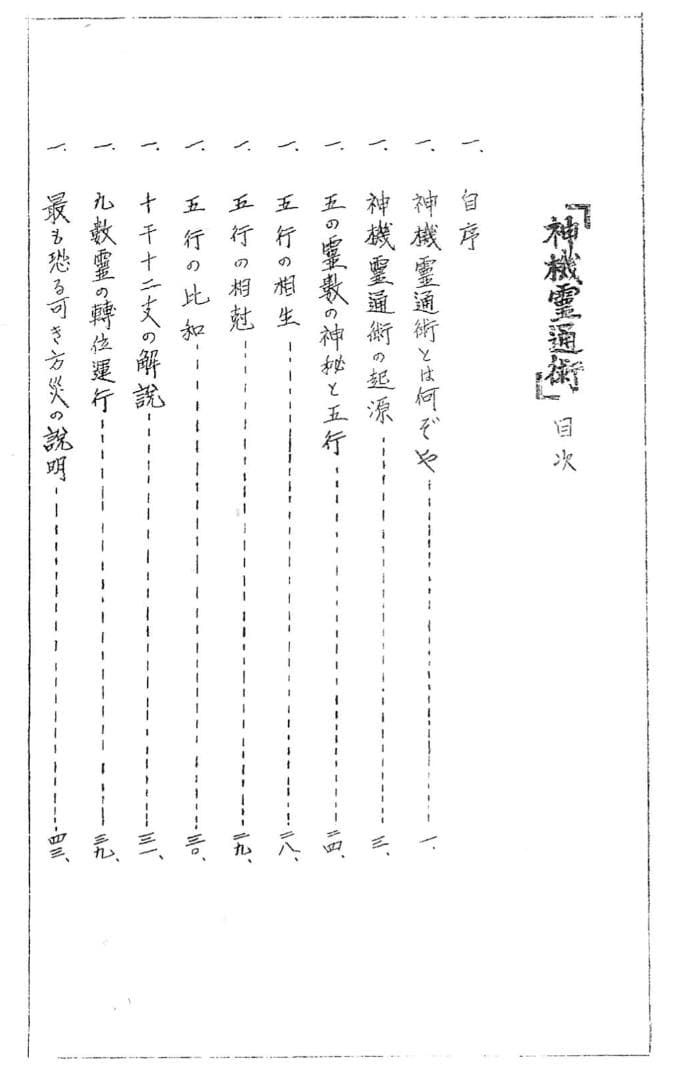 「神機霊通術」目次
一、自序
一、神機霊通術とは何ぞや 一、
一、神機霊通術の起源 三、
一、五の霊数の神秘と五行 二四、
一、五行の相生 二八、
一、五行の相尅 二九、
一、五行の比和 三〇、
一、十干十二支の解説 三一、
一、九数霊の轉位運行 三九、
一、最も恐る可き方災の説明 四三、